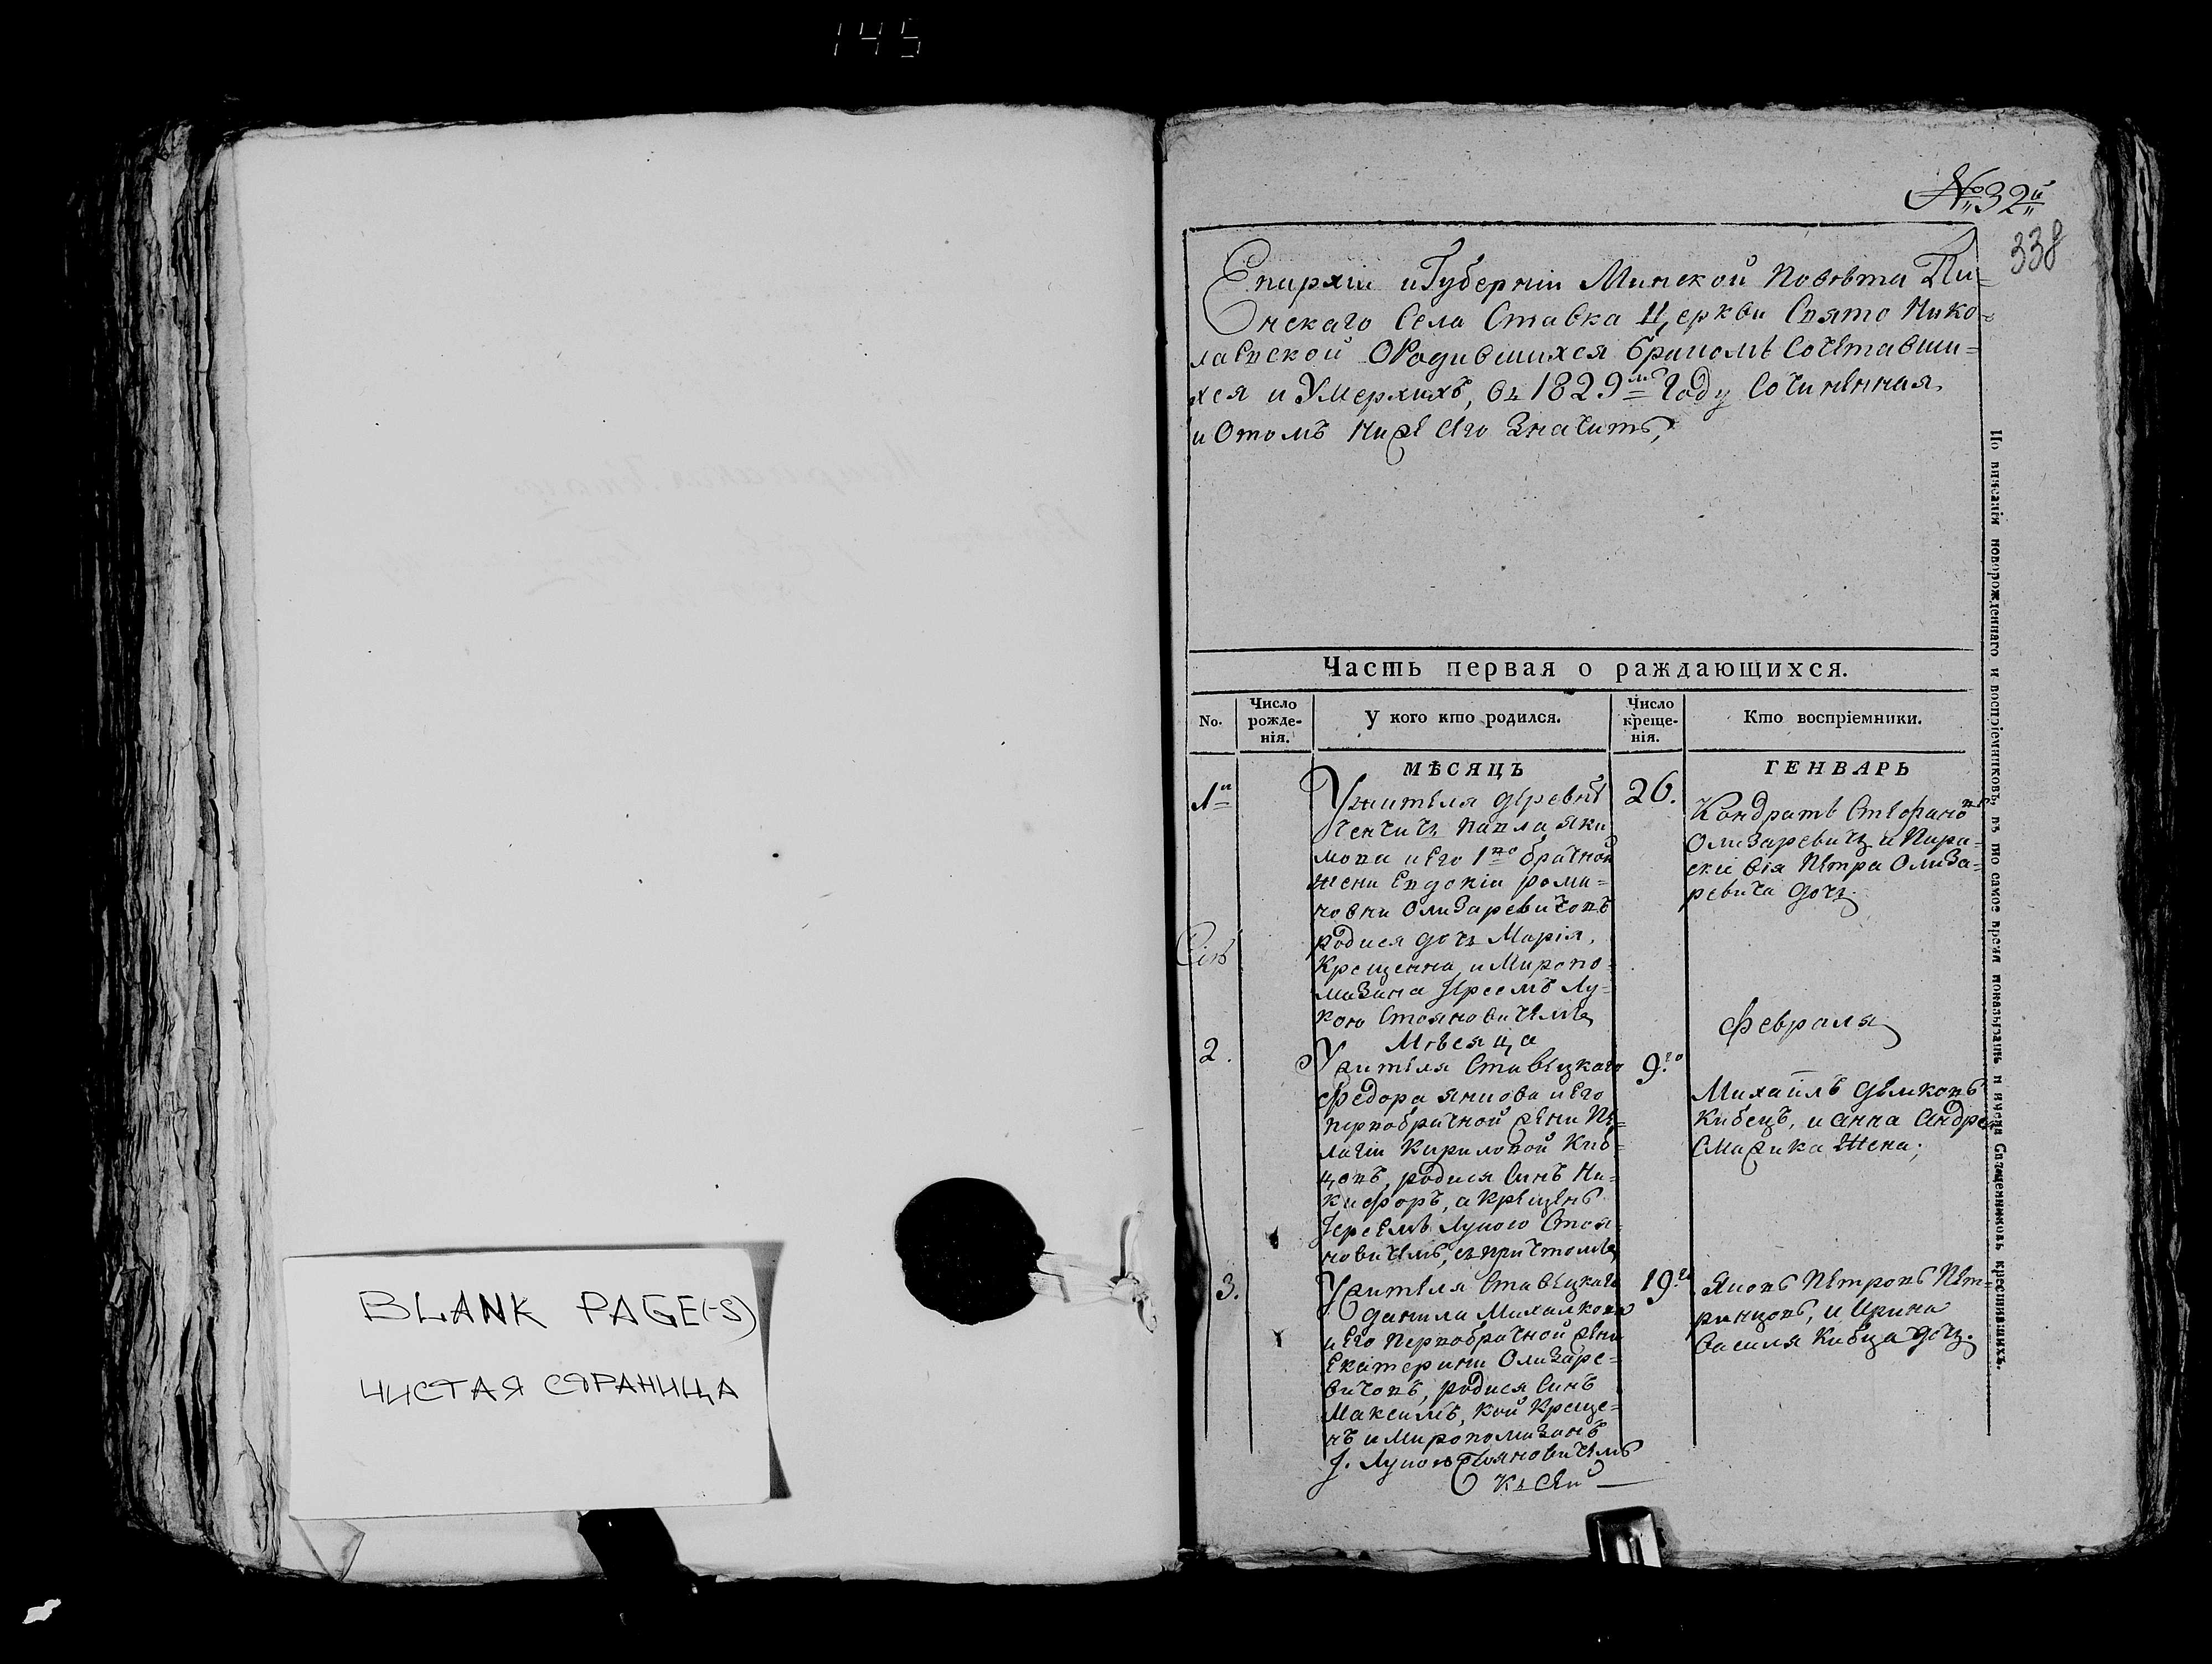 145
BLANK PAGE(-S)
ЧИСТАЯ СТРАНИЦА
№ 32й
338
Епархіи и Губерніи Минской Повѣта Пи-
нскаго Села Ставка Церкви Свято Нико-
лаевской О Родившихся бракомъ Сочетавши-
хся и Умерхихъ, въ 1829мъ Году Сочиненная
и Отомъ Ниже Сего Значитъ,
Часть первая о раждающихся.
No.
Число рожде-нія.
У кого кто родился.
Число креще-нія.
Кто воспріемники.
МѢСЯЦЪ
ГЕНВАРЬ
1й
Ужителя деревнѣ
Павла Яки
мова и Его 1во брачной
жени Евдокіи рома-
новни Олизаревичовъ
родися дочь Марія,
Крещенна, и Миропо-
мазана Іереемъ Лу-
кою Стояновичемъ
26.
Кандратъ Стефано
Олизаревичъ и Пара-
скевія Петра Олиза-
ревича дочь.
Месяца
Февраля
2.
Ужителя Ставецкаго
Федора янцова и Его
первобрачной жени Пе-
лагіи Кириловой Киб-
цовъ, родися Синъ Ни-
кифоръ, а Крещенъ
Іереемъ Лукою Стоя-
новичемъ, съ причтомъ
9го
Михаилъ демковъ
Кибецъ, и анна Андрея
Смажика Жена;
3.
Ужителя Ставецкаго
данила Михалкова
и Его Первобрачной жени
Екатерини Олизаре-
вичовъ, родися Синъ
Максимъ, кой Креще-
нъ и Миропомазанъ
І. Лукою Стояновичемъ
19го
Яковъ Петровъ Пет-
ранцовъ, и Ирина
Василя Кибца дочь.
По вписаніи новорожденнаго и воспріемниковъ, въ тоо самое время показывать и имена Священниковъ крестившихъ.